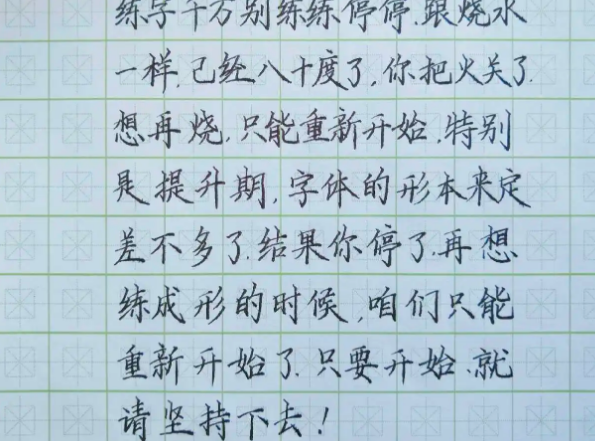 练字千万别练练停停.跟烧水
一样.已经八十度了,你把火关了.
想再烧.只能重新开始.特别
是提升期,字体的形本来定
差不多了.结果你停了.再想
练成形的时候,咱们只能
重新开始了.只要开始.就
请坚持下去！